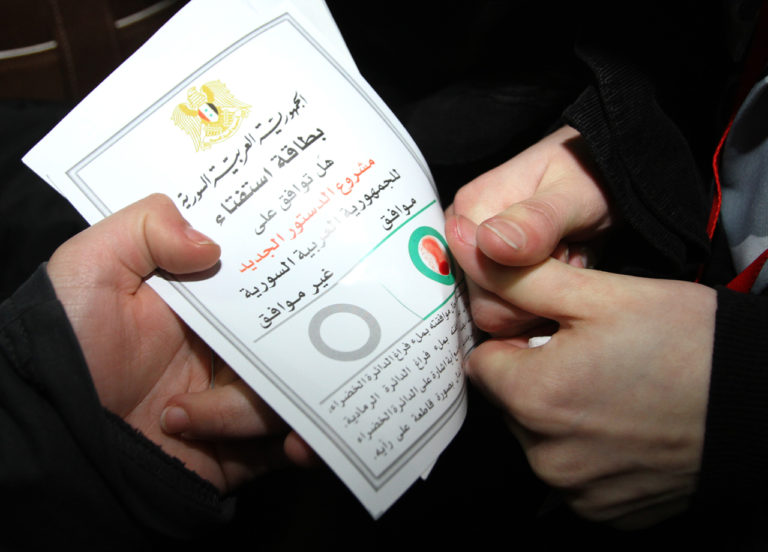 الجمهورية العربية السورية
بطاقة استفتاء
هل توافق على
مشروع الدستور الجديد
للجمهورية العربية السورية
موافق
غير موافق
موافقته بملء فراغ الدائرة الخضراء،
بملء فراغ الدائرة الرمادية.
إشارة على الدائرة الخضراء
بصورة قاطعة على رأيه.